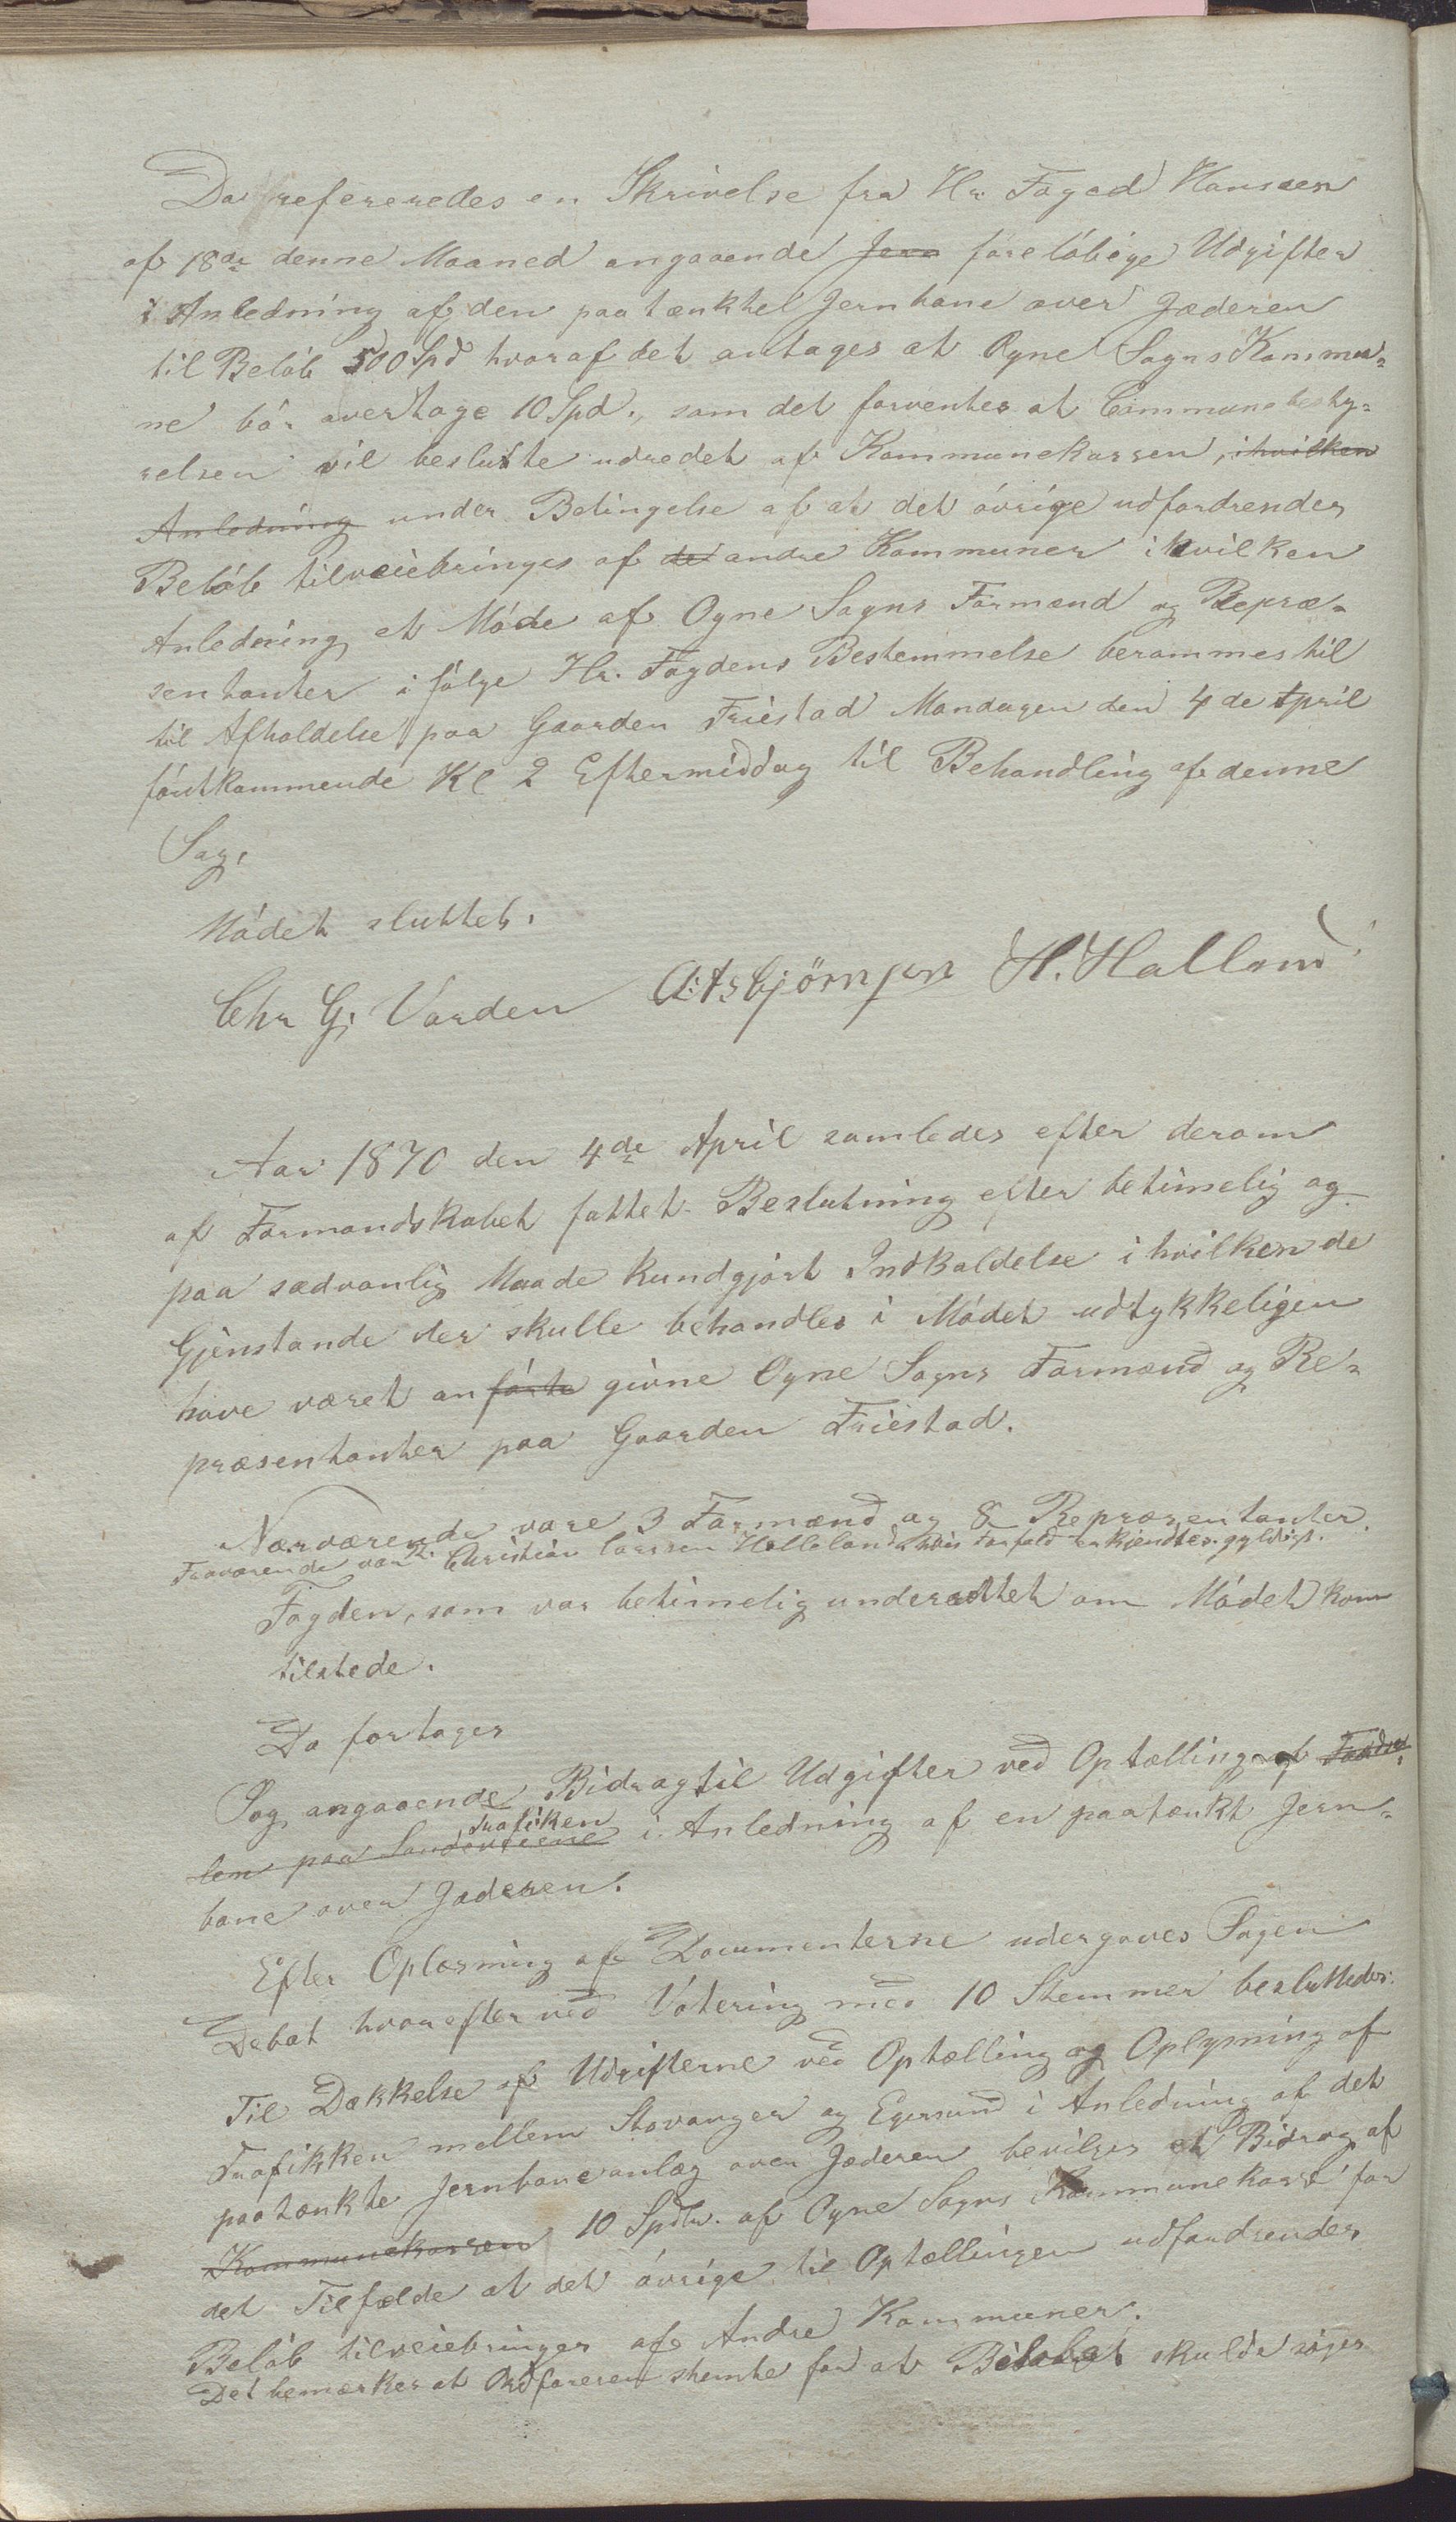 Da refereredes en Skrivelse fra Hr. Foged Hansen
af 18de denne Maaned angaaende Jern foreløbige Udgifter
i Anledning af den paatænkte Jernbane over Jæderen
til Beløb 500 Spd hvoraf det antages at Ogne Sogns Kommu-
ne bør overtage 10 Spd., som det forventes at Communebesty-
relsen vil beslutte udredet af Kommunekassen, i hvilken
Anledning under Betingelse af at det øvrige udfordrendes
Beløb tilveiebringes af de andre Kommuner i hvilken
Anledning et Møde af Ogne Sogns Formænd og Repræ-
sentanter i følge Hr. Fogdens Bestemmelse berammes til
til Afholdelse paa Gaarden Friestad Mandagen den 4de April
førstkommende Kl 2 Eftermiddag til Behandling af denne
Sag.
Mødet sluttet.
Chr G. Varden A. Asbjörnsen H. Halland
Aar 1870 den 4de April samledes efter derom
af Formandskabet fattet Beslutning efter betimelig og
paa sædvanlig Maade kundgjørt Indkaldelse i hvilken de
Gjenstande der skulle behandles i Mødet udtykkeligen
have været anførte givne Ogne Sogns Formænd og Re-
præsentanter paa Gaarden Friestad.
Nærværende vare 3 Formænd og 8 Repræsentanter.
Fraværende var Christian Larssen Helleland hvis Forfald erkjendtes gyldigt.
Fogden, som var betimelig underrettet om Mødet kom
tilstede.
Da fortoges
Sag angaaende Bidrag til Udgifter ved Optælling af Færdse-
len paa Landeveiene Trafiken i Anledning af en paatænkt Jern-
bane over Jæderen.
Efter Oplæsning af Documenterne udergaves Sagen
Debat hvorefter ved Votering med 10 Stemmer besluttedes:
Til Dækkelse af Udgifterne ved Optælling og Oplysning af
Trafikken mellem Stavanger og Egersund i Anledning af det
paatænkte Jernbaneanlæg over Jæderen bevilges et Bidrag af
Kommunekassen 10 Spdlr. af Ogne Sogns Kommunekasse for
det Tilfælde at det øvrige til Optællingen udfordrendes
Beløb tilveiebringes af Andre Kommuner.
Det bemærkes at Ordføreren stemte for at Beløbet skulde søges